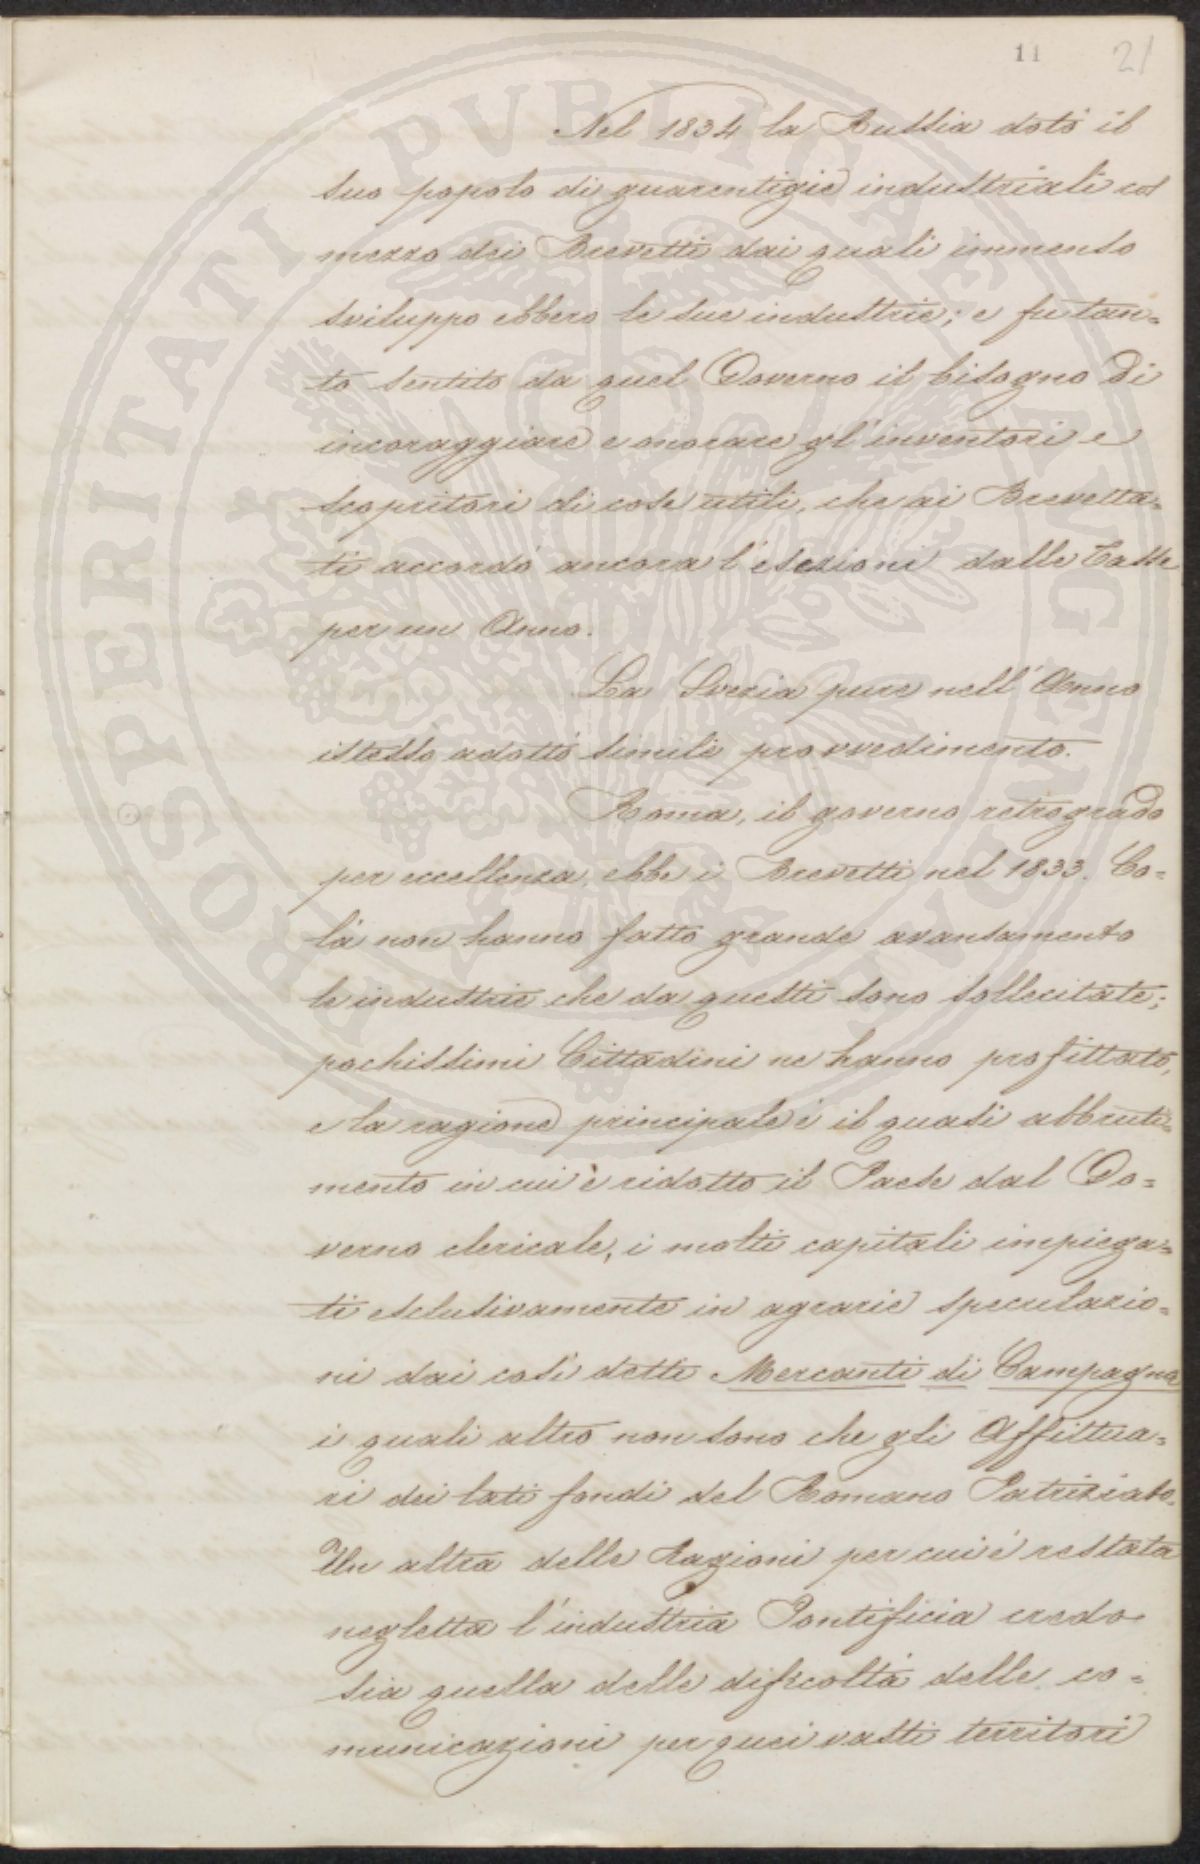 11 21
Nel 1834 la Russia dotò il
suo popolo di guarentigie industriali col
mezzo dei Brevetti dai quali immenso
sviluppo ebbero le sue industrie; e fu tan=
to sentito da quel Governo il bisogno di
incoraggiare e onorare gl'inventori e
scopritori di cose utili, che ai Brevetta=
ti accordò ancora l'esezioni dalle Tasse
per un Anno.
La Svezia pure nell'Anno
istesso adottò simili provvedimento.
Roma, il governo retrogrado
per eccellenza, ebbe i Brevetti nel 1833. Co=
là non hanno fatto grande avansamento
le industrie che da questi sono sollecitate;
pochissimi Cittadini ne hanno profittato,
e la ragione principale è il quasi abbruti=
mento in cui è ridotto il Paese dal Go=
verno clericale, i molti capitali impiega=
ti esclusivamente in agrarie speculazio=
ni dai così detti Mercanti di Campagna
i quali altro non sono che gli Affittua=
ri dei lati fondi del Romano Patriziato.
Un altra delle Ragioni per cui è restata
negletta l'industria Pontificia credo
sia quella delle difficoltà delle co=
municazioni per quei vasti territori
PROSPERITATI PVBLICAE AVGENDAE